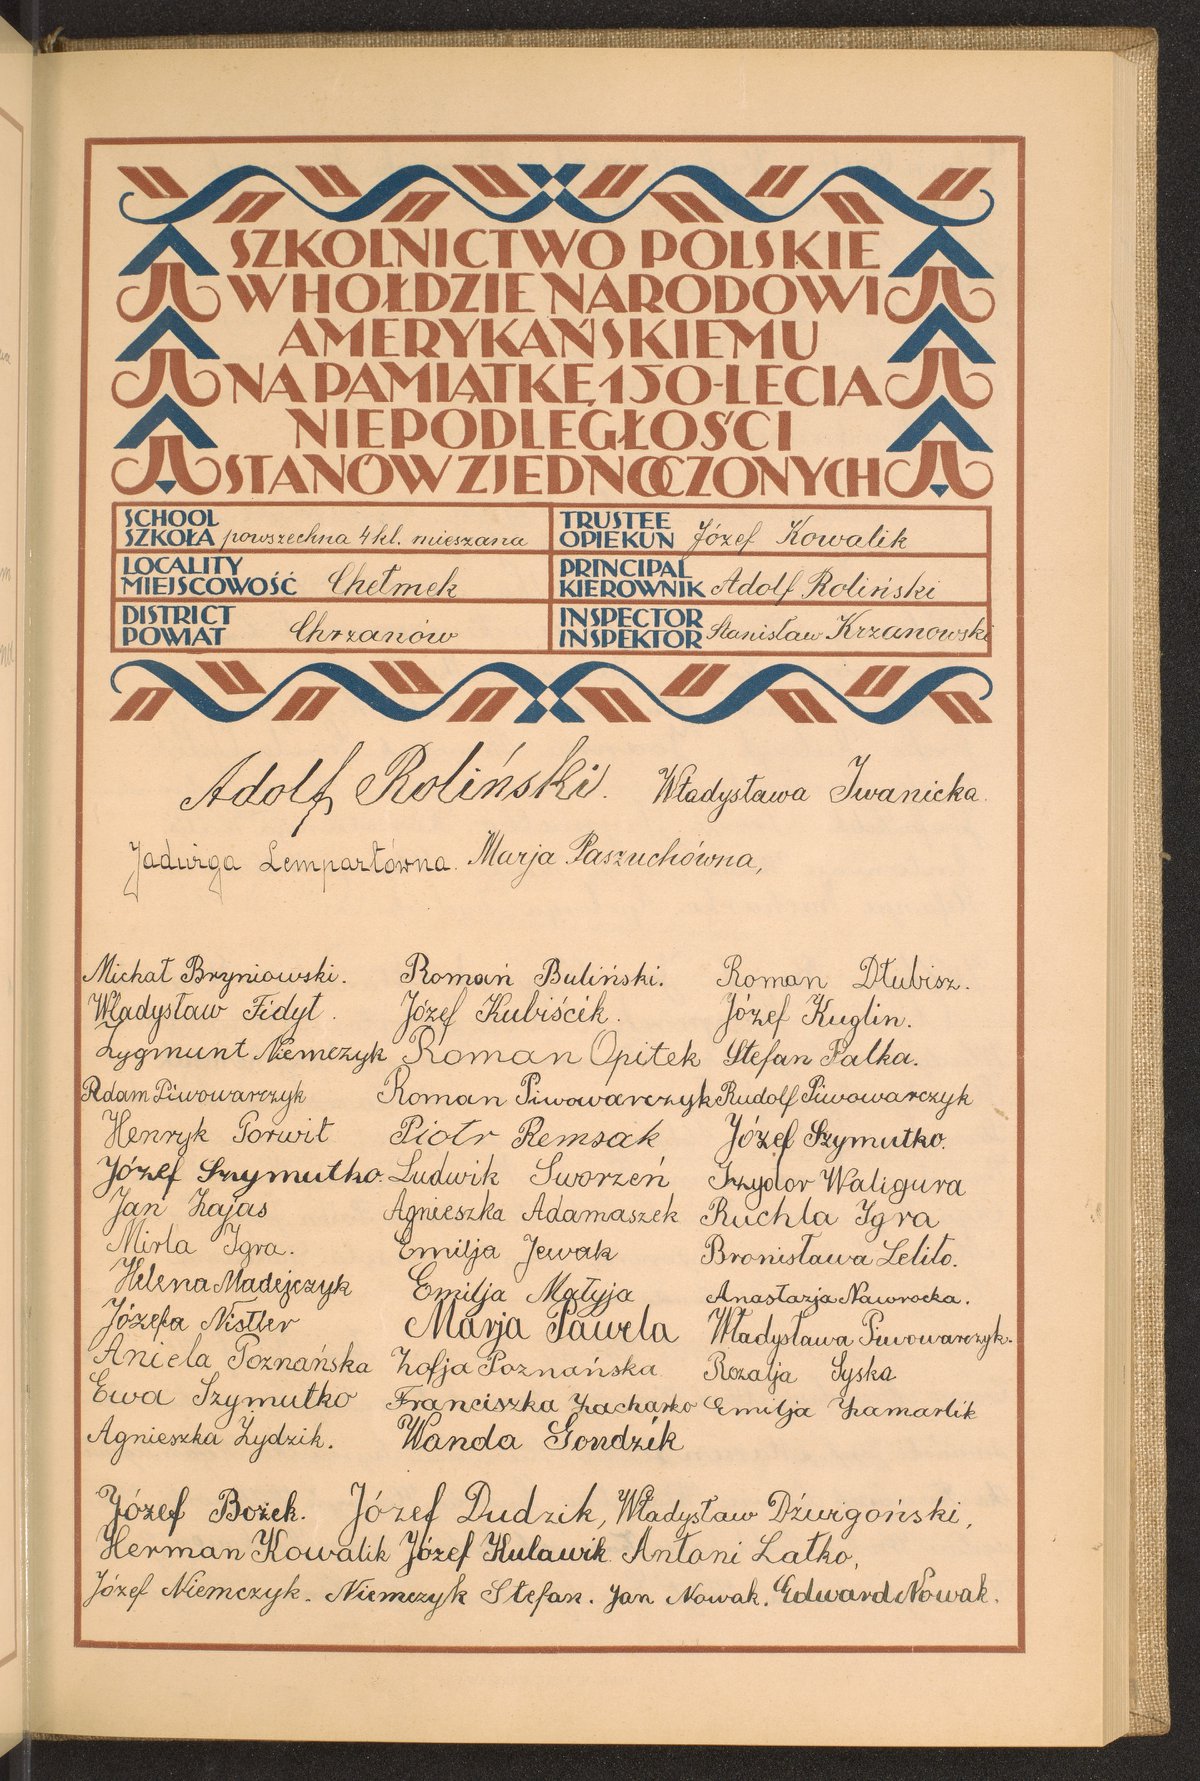 SZKOLNICTWO POLSKIE
W HOŁDZIE NARODOWI
AMERYKAŃSKIEMU
NA PAMIĄTKĘ 150-LECIA
NIEPODLEGŁOŚCI
STANÓW ZJEDNOCZONYCH
SCHOOL
SZKOŁA powszechna 4 kl. mieszana
TRUSTEE
OPIEKUN Józef Kowalik
LOCALITY
MIEJSCOWOŚĆ Chełmek
PRINCIPAL
KIEROWNIK Adolf Roliński
DISTRICT
POWIAT Chrzanów
INSPECTOR
INSPEKTOR Stanisław Krzanowski
Adolf Roliński. Władysława Iwanicka.
Jadwiga Lempartówna. Marja Paszuchówna,
Michał Bryniowski. Roman Buliński. Roman Dłubisz.
Władysław Fidyt. Józef Kubiścik. Józef Kuglin.
Zygmunt Niemczyk Roman Opitek Stefan Palka.
Adam Piwowarczyk Roman Piwowarczyk Rudolf Piwowarczyk
Henryk Porwit Piotr Remsak Józef Szymutko.
Józef Szymutko. Ludwik Sworzeń Izydor Waligura
Jan Zajas Agnieszka Adamaszek Ruchla Igra
Mirla Igra. Emilja Jewak Bronisława Lelito.
Helena Madejczyk Emilja Matyja Anastazja Nawrocka.
Józefa Nistler Marja Pawela Władysława Piwowarczyk.
Aniela Poznańska Zofja Poznańska Rozalja Syska
Ewa Szymutko Franciszka Zacharko Emilja Zamarlik
Agnieszka Zydzik. Wanda Gondzik
Józef Bożek. Józef Dudzik, Władysław Dźwigoński,
Herman Kowalik Józef Kulawik. Antoni Latko,
Józef Niemczyk. Niemczyk Stefan. Jan Nowak. Edward Nowak.